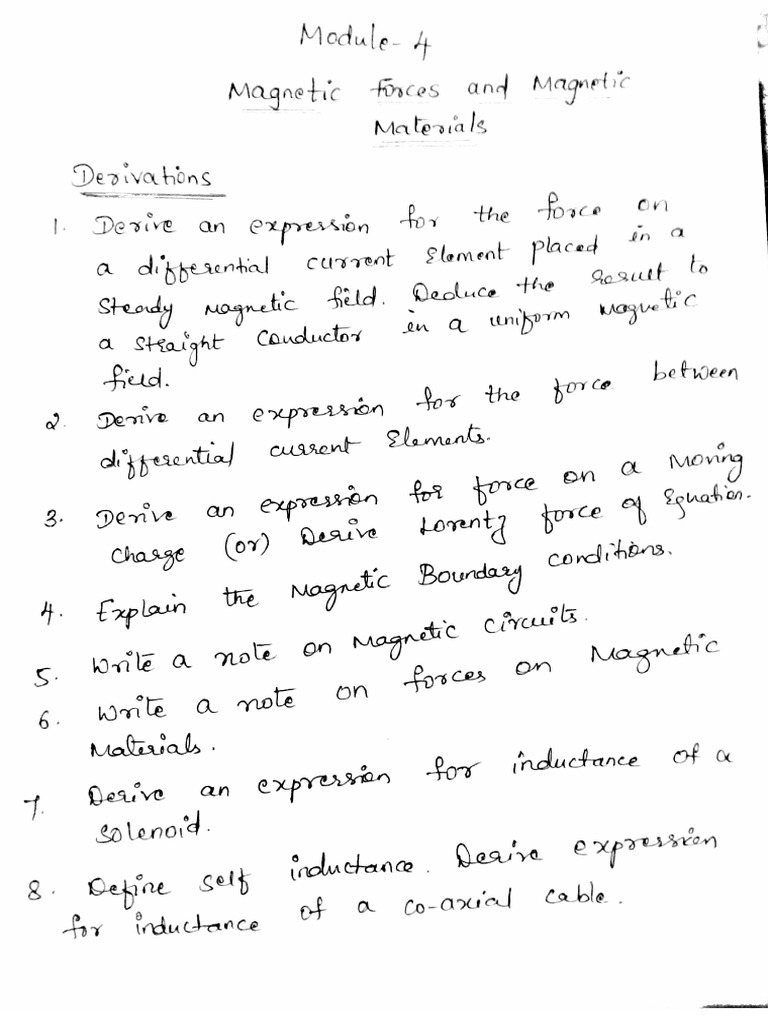 Module-4
Magnetic Forces and Magnetic
Materials
Derivations
1. Derive an expression for the force on
a differential current Element placed in a
steady Magnetic field. Deduce the result to
a straight conductor in a uniform Magnetic
field.
2. Derive an expression for the force between
differential current Elements.
3. Derive an expression for force on a Moving
charge (or) Derive Lorentz force of Equation.
4. Explain the Magnetic Boundary conditions.
5. Write a note on Magnetic circuits.
6. Write a note on forces on Magnetic
Materials.
7. Derive an expression for inductance of a
solenoid.
8. Define self inductance. Derive expression
for inductance of a co-axial cable.